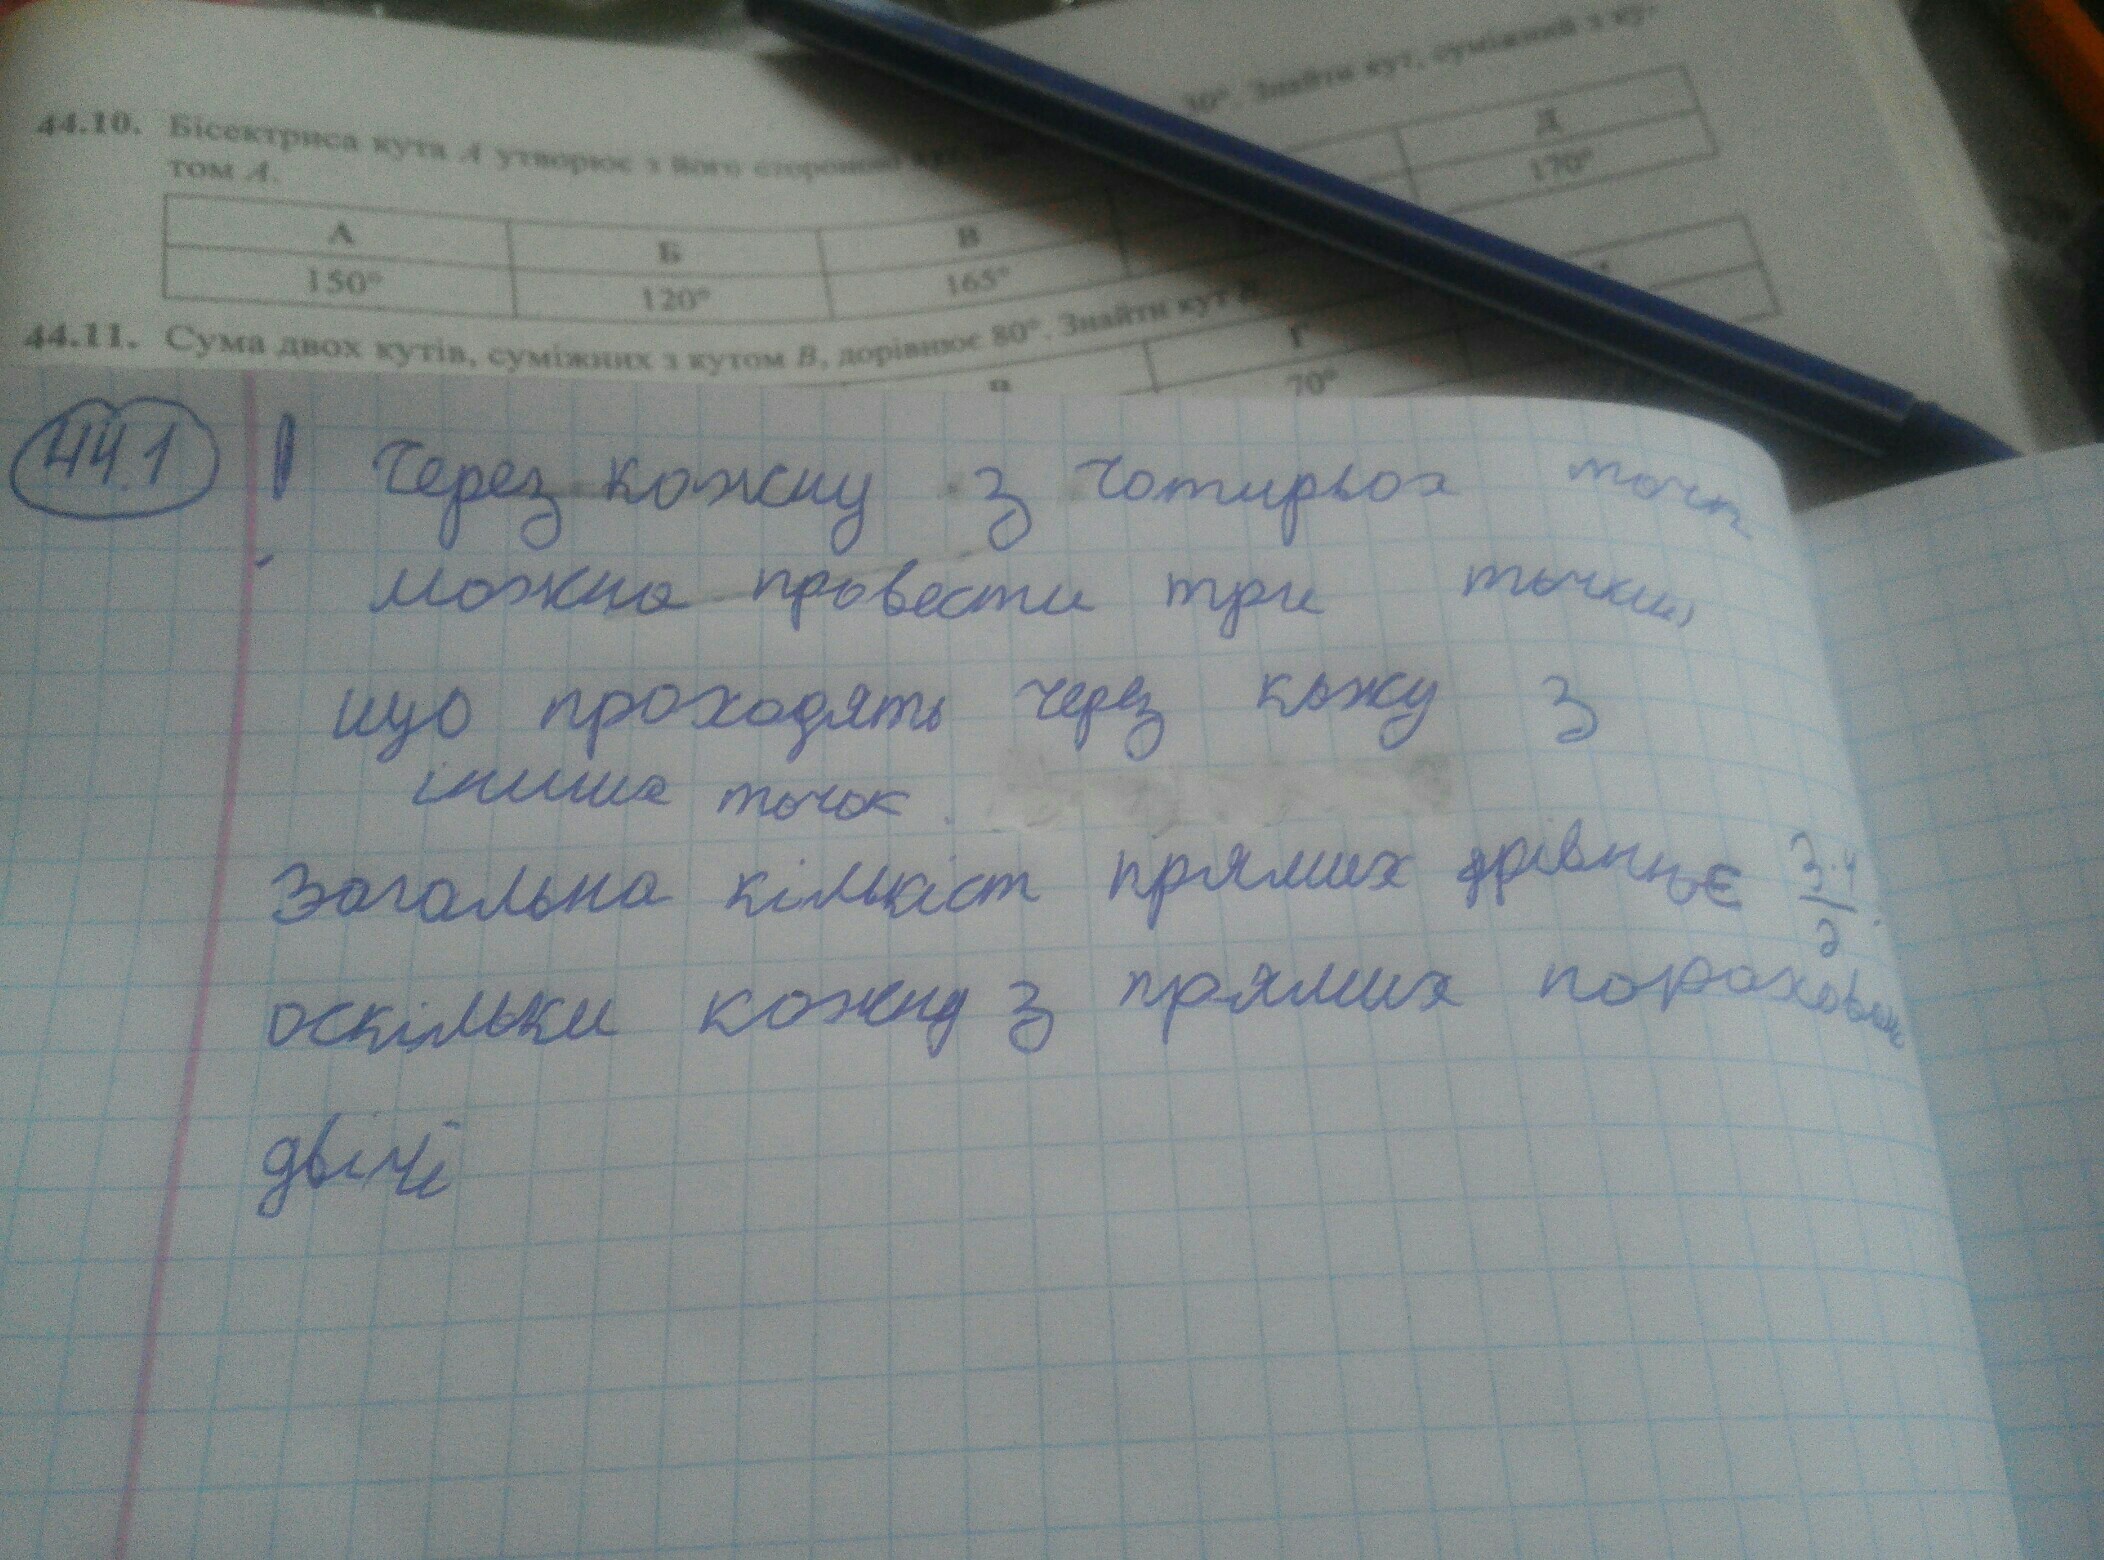 44.10. Бісектриса кута A утворює з його стороною 30°. Знайти кут, суміжний з ку-
том A.
А Б В Д
150° 120° 165° 170°
44.11. Сума двох кутів, суміжних з кутом B, дорівнює 80°. Знайти кут B
Г
70°
44.1
Через кожну з чотирьох точк
можна провести три точки,
що проходять через кожу з
інших точок.
Загальна кількіст прямих дорівнює 3·4/2
оскільки кожна з прямих порахована
двічі